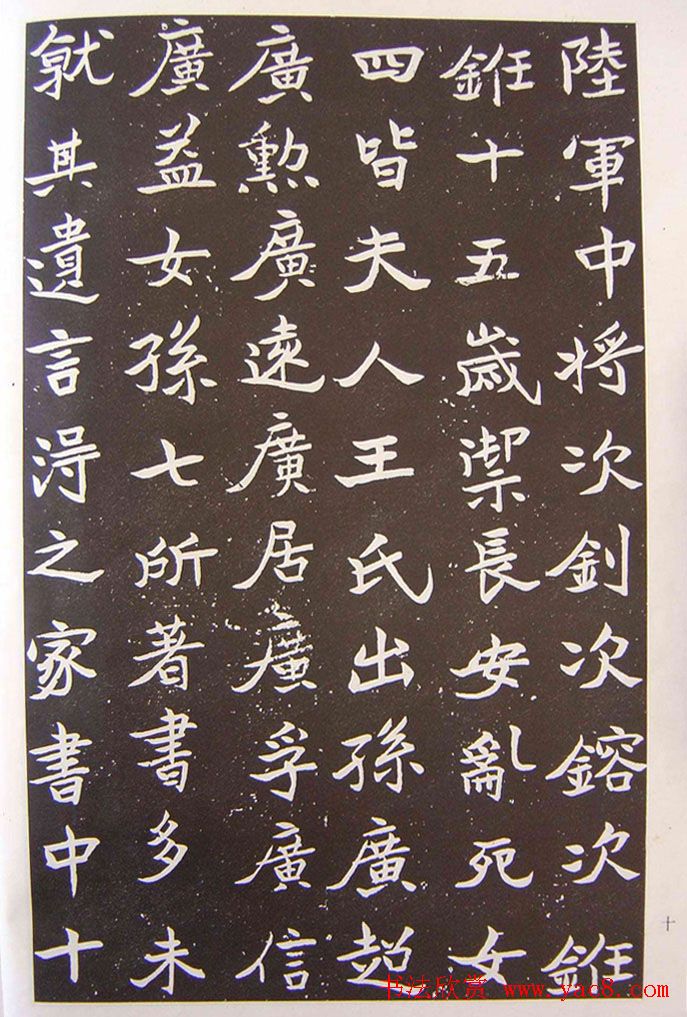 陸軍中将次釗次鎔次銋
銋十五歲禦長安亂死女
四皆夫人王氏出孫廣超
廣勲廣遠廣居廣孚廣信
廣益女孫七所著書多未
就其遺言淂之家書中十
十
书法欣赏 www.yac8.com